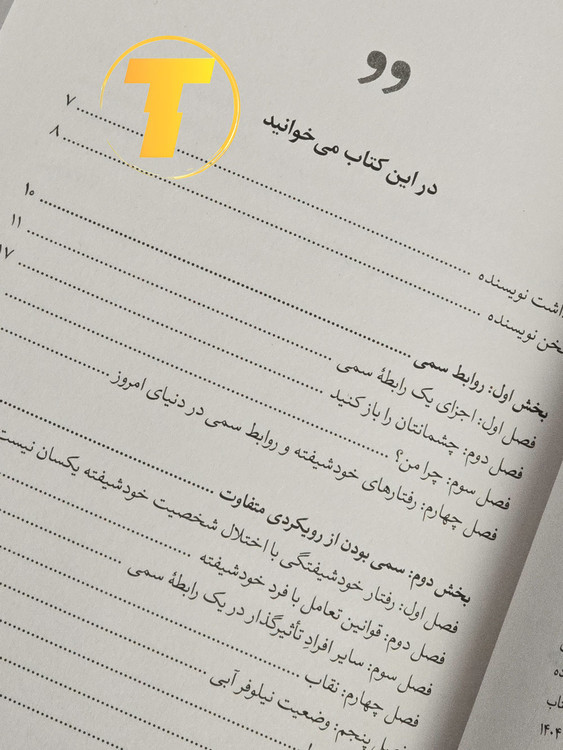 T
در این کتاب می‌خوانید
نویسنده ۷
نویسنده ۸
بخش اول: روابط سمی ۱۰
فصل اول: اجزای یک رابطهٔ سمی ۱۱
فصل دوم: چشمانتان را باز کنید ۱۷
فصل سوم: چرا من؟
فصل چهارم: رفتارهای خودشیفته و روابط سمی در دنیای امروز
بخش دوم: سمی بودن از رویکردی متفاوت
فصل اول: رفتار خودشیفتگی با اختلال شخصیت خودشیفته یکسان نیست
فصل دوم: قوانین تعامل با فرد خودشیفته
فصل سوم: سایر افرادِ تأثیرگذار در یک رابطهٔ سمی
فصل چهارم: نقاب
پنجم: وضعیت نیلوفر آبی
۱۴۰۴